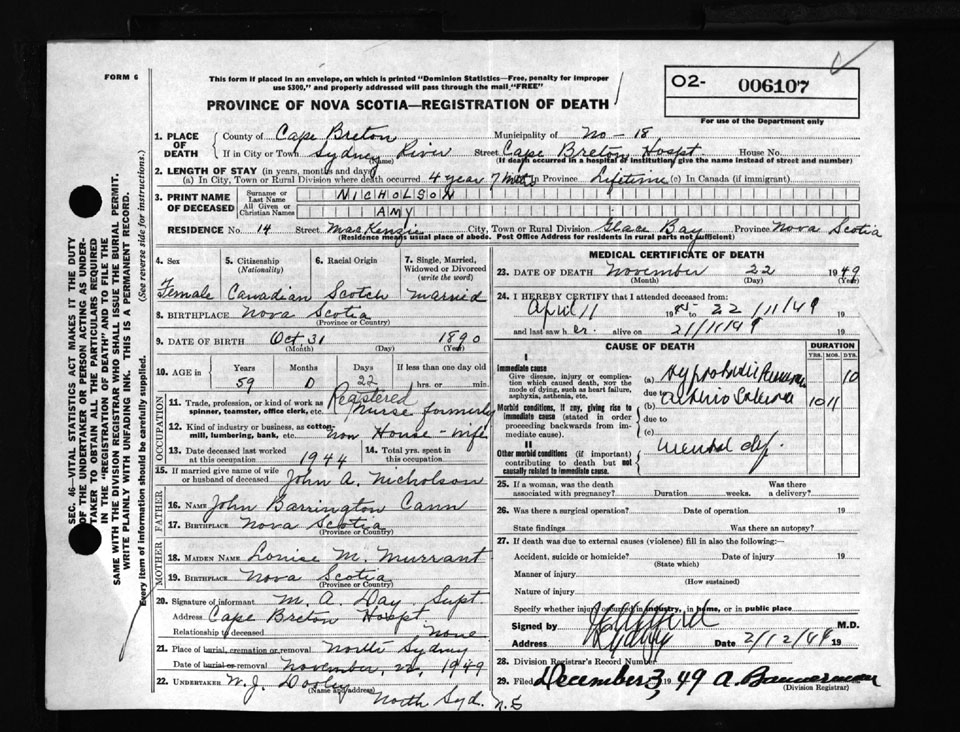 FORM 6
This form if placed in an envelope, on which is printed "Dominion Statistics—Free, penalty for improper
use $300," and properly addressed will pass through the mail "FREE"
PROVINCE OF NOVA SCOTIA—REGISTRATION OF DEATH
O2- 006107
For use of the Department only
SEC. 46—VITAL STATISTICS ACT MAKES IT THE DUTY
OF THE UNDERTAKER OR PERSON ACTING AS UNDER-
TAKER TO OBTAIN ALL THE PARTICULARS REQUIRED
IN THE "REGISTRATION OF DEATH" AND TO FILE THE
SAME WITH THE DIVISION REGISTRAR WHO SHALL ISSUE THE BURIAL PERMIT.
WRITE PLAINLY WITH UNFADING INK. THIS IS A PERMANENT RECORD.
Every item of information should be carefully supplied. (See reverse side for instructions.)
1. PLACE OF DEATH County of Cape Breton Municipality of No - 18
If in City or Town Sydney River Street Cape Breton Hospt. House No.
(Name) (If death occurred in a hospital or institution, give the name instead of street and number)
2. LENGTH OF STAY (in years, months and days)
(a) In City, Town or Rural Division where death occurred 4 year 7 Mths In Province Lifetime (c) In Canada (if immigrant)
3. PRINT NAME OF DECEASED Surname or Last Name NICHOLSON
All Given or Christian Names AMY
RESIDENCE No. 14 Street MacKenzie City, Town or Rural Division Glace Bay Province Nova Scotia
(Residence means usual place of abode. Post Office Address for residents in rural parts not sufficient)
4. Sex 5. Citizenship (Nationality) 6. Racial Origin 7. Single, Married, Widowed or Divorced (write the word)
Female Canadian Scotch married
8. BIRTHPLACE Nova Scotia
(Province or Country)
9. DATE OF BIRTH Oct 31 1890
(Month) (Day) (Year)
10. AGE in Years Months Days If less than one day old
59 0 22 hrs. or min.
OCCUPATION
11. Trade, profession, or kind of work as spinner, teamster, office clerk, etc. Registered Nurse formerly
12. Kind of industry or business, as cotton mill, lumbering, bank, etc. now House-wife
13. Date deceased last worked at this occupation 1944 14. Total yrs. spent in this occupation
15. If married give name of wife or husband of deceased John A. Nicholson
FATHER
16. NAME John Barrington Cann
17. BIRTHPLACE Nova Scotia
(Province or Country)
MOTHER
18. MAIDEN NAME Louise M. Murrant
19. BIRTHPLACE Nova Scotia
(Province or Country)
20. Signature of informant M. A. Day Supt.
Address Cape Breton Hospt
Relationship to deceased None
21. Place of burial, cremation or removal North Sydney
Date of burial or removal November, 22, 1949
22. UNDERTAKER W. J. Dooley
(Name and address)
North Syd. N.S
MEDICAL CERTIFICATE OF DEATH
23. DATE OF DEATH November 22 1949
(Month) (Day) (Year)
24. I HEREBY CERTIFY that I attended deceased from:
April 11 1945 to 22/11/49 19
and last saw her alive on 21/11/49 19
CAUSE OF DEATH DURATION
YRS. MOS. DYS.
I
Immediate cause
Give disease, injury or complication which caused death, not the mode of dying, such as heart failure, asphyxia, asthenia, etc.
(a) 10
due to
Morbid conditions, if any, giving rise to immediate cause (stated in order proceeding backwards from immediate cause).
(b) 10 11
due to
(c)
II
Other morbid conditions (if important) contributing to death but not causally related to immediate cause.
mental def.
25. If a woman, was the death associated with pregnancy? Duration weeks. Was there a delivery?
26. Was there a surgical operation? Date of operation 19
State findings Was there an autopsy?
27. If death was due to external causes (violence) fill in also the following:
Accident, suicide or homicide? Date of injury 19
(State which)
Manner of injury
(How sustained)
Nature of injury
Specify whether injury occurred in industry, in home, or in public place
Signed by M.D.
Address Sydney Date 2/12/49 19
28. Division Registrar's Record Number
29. Filed December 3, 1949 A. Bannerman
(Division Registrar)